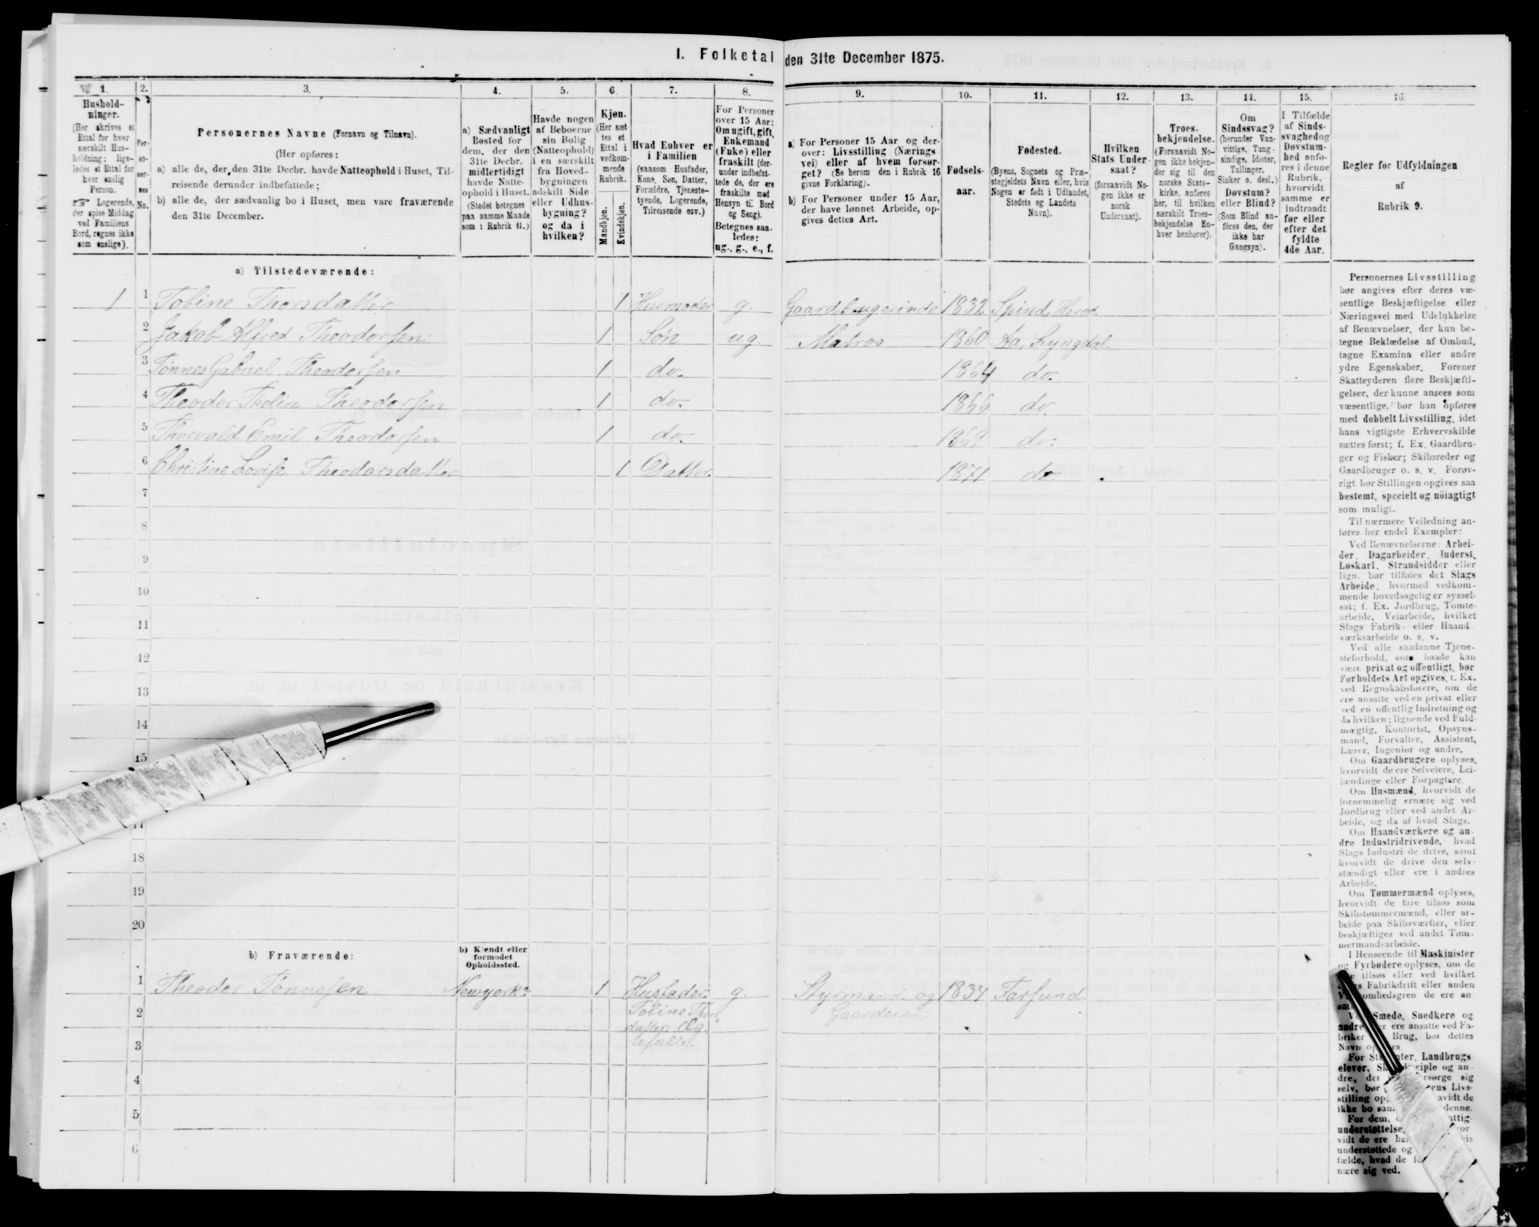 I. Folketal den 31te December 1875.
1.
Hushold-
ninger.
(Her skrives et
Ettal for hver
særskilt Hus-
holdning; lige-
ledes et Ettal for
hver enslig
Person.
Logerende,
der spise Middag
ved Familiens
Bord, regnes ikke
som enslige).
2.
Per-
so-
ner-
nes
No.
3.
Personernes Navne (Fornavn og Tilnavn).
(Her opføres:
a) alle de, der den 31te Decbr. havde Natteophold i Huset, Til-
reisende derunder indbefattede;
b) alle de, der sædvanlig bo i Huset, men vare fraværende
den 31te December.
4.
a) Sædvanligt
Bosted for
dem, der den
31te Decbr.
midlertidigt
havde Natte-
ophold i Huset.
(Stedet betegnes
paa samme Maade
som i Rubrik 11.)
5.
Havde nogen
af Beboerne
sin Bolig
(Natteophold)
i en særskilt
fra Hoved-
bygningen
adskilt Side
eller Udhus-
bygning?
og da i
hvilken?
6.
Kjøn.
(Her sæt
tes et
Ettal i
vedkom-
mende
Rubrik.
Mandkjøn.
Kvindekjøn.
7.
Hvad Enhver er
i Familien
(saasom Husfader,
Kone, Søn, Datter,
Forældre, Tjeneste-
tyende, Logerende,
Tilreisende osv.)
8.
For Personer
over 15 Aar:
Om ugift, gift,
Enkemand
(Enke) eller
fraskilt (der-
under indbefat-
tede de, der ere
fraskilte med
Hensyn til Bord
og Seng).
Betegnes saa-
ledes:
ug., g., e., f.
9.
a) For Personer 15 Aar og der-
over: Livsstilling (Nærings
vei) eller af hvem forsør-
get? (Se herom den i Rubrik 16
givne Forklaring).
b) For Personer under 15 Aar,
der have lønnet Arbeide, op-
gives dettes Art.
10.
Fødsels-
aar.
11.
Fødested.
(Byens, Sognets og Præ-
stegjeldets Navn eller, hvis
Nogen er født i Udlandet,
Stedets og Landets
Navn).
12.
Hvilken
Stats Under-
saat?
(forsaavidt No-
gen ikke er
norsk
Undersaat).
13.
Troes-
bekjendelse.
(Forsaavidt No-
gen ikke bekjen-
der sig til den
norske Stats-
kirke, anføres
her, til hvilken
særskilt Troes-
bekjendelse En-
hver henhører).
14.
Om
Sindssvag?
(herunder Van-
vittige, Tung-
sindige, Idioter,
Tullinger,
Sinker o. desl.)
Døvstum?
eller Blind?
(Som Blind an-
føres den, der
ikke har
Gangsyn).
15.
I Tilfælde
af Sinds-
svaghed og
Døvstum-
hed anfø-
res i denne
Rubrik,
hvorvidt
samme er
indtraadt
før eller
efter det
fyldte
4de Aar.
16.
Regler for Udfyldningen
af
Rubrik 9.
a) Tilstedeværende:
1 1 Tobine Thorsdatter 1 Husmoder g. Gaardbrugerinde 1832 Spind, Herod
2 Jakob Alfred Theodorsen 1 Søn ug. Matros 1860 Aa, Lyngdal
3 Tønnes Gabriel Theodorsen 1 do. 1864 do.
4 Theodor Tholin Theodorsen 1 do. 1866 do
5 Thorvald Emil Theodorsen 1 do. 1869 do.
6 Christine Lovise Theodorsdatter 1 Datter 1871 do
7
8
9
10
11
12
13
14
15
17
18
19
20
b) Fraværende:
b) Kjendt eller
formodet
Opholdssted.
1 Theodor Tønnesen Newyork 1 Husfader g. Styrmand og 1834 Farsund
2 Tobine Thor Gaardeier.
datters Æg
3 tefælle.
4
5
6
Personernes Livsstilling
bør angives efter deres væ-
sentlige Beskjæftigelse eller
Næringsvei med Udelukkelse
af Benævnelser, der kun be-
tegne Beklædelse af Ombud,
tagne Examina eller andre
ydre Egenskaber. Forener
Skatteyderen flere Beskjæfti-
gelser, der kunne ansees som
væsentlige, bør han opføres
med dobbelt Livsstilling, idet
hans vigtigste Erhvervskilde
sættes først; f. Ex. Gaardbru-
ger og Fisker; Skibsreder og
Gaardbruger o. s. v. Forøv-
rigt bør Stillingen opgives saa
bestemt, specielt og nøiagtigt
som muligt.
Til nærmere Veiledning an-
føres her endel Exempler:
Ved Benævnelserne: Arbei-
der, Dagarbeider, Inderst,
Løskarl, Strandsidder eller
lign. bør tilføies det Slags
Arbeide, hvormed vedkom-
mende hovedsagelig er syssel-
sat; f. Ex. Jordbrug, Tomte-
arbeide, Veiarbeide, hvilket
Slags Fabrik- eller Haand-
værksarbeide o. s. v.
Ved alle saadanne Tjene-
steforhold, som baade kan
være privat og offentligt, bør
Forholdets Art opgives, t. Ex.
ved Regnskabsførere, om de
ere ansatte ved en privat eller
ved en offentlig Indretning og
da hvilken; lignende ved Fuld-
mægtig, Kontorist, Opsyns-
mand, Forvalter, Assistent,
Lærer, Ingeniør og andre.
Om Gaardbrugere oplyses,
hvorvidt de ere Selveiere, Lei-
lændinge eller Forpagtere.
Om Husmænd, hvorvidt de
fornemmelig ernære sig ved
Jordbrug eller ved andet Ar-
beide, og da af hvad Slags.
Om Haandværkere og an-
dre Industridrivende, hvad
Slags Industri de drive, samt
hvorvidt de drive den selv-
stændigt eller ere i andres
Arbeide.
Om Tømmermænd oplyses,
hvorvidt de fare tilsøs som
Skibstømmermænd, eller ar-
beide paa Skibsværfter, eller
beskjæftiges ved andet Tøm-
mermandsarbeide.
I Henseende til Maskinister
og Fyrbødere oplyses, om de
tilsøs eller ved hvilket
Fabrikdrift eller anden
de ere an
Smede, Snedkere og
andre ere ansatte ved Fa-
Brug, bør dettes
Navn
For Landbrugs
elever, og an
dre,
selv, bør Livs-
stilling
ikke bo denne.
For dem,
understøttelse,
vidt de ere
understøttede og
fælde, hvad de
nære sig ved.